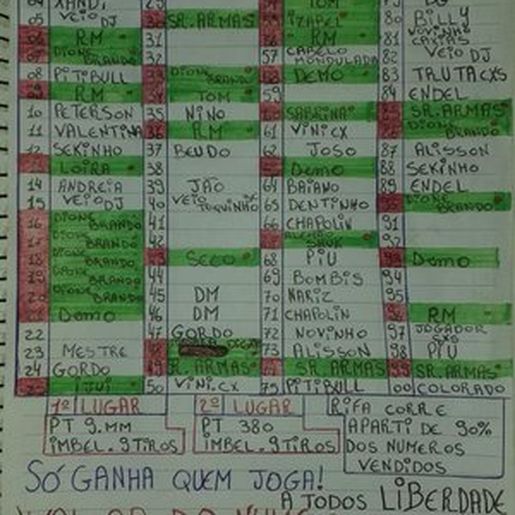 04 XANDI
05 VEIO DJ
06 RM
07 DIONE BRANDO
08 PITIBULL
09 RM
10 PETERSON
11 VALENTINA
12 SEKINHO
13 LOIRA
14 ANDREIA
15 VEIO DJ
16 DIONE BRANDO
17 DIONE BRANDO
18 DIONE BRANDO
19 DIONE BRANDO
20 DIONE BRANDO
21 DEMO
22
23 MESTRE
24 GORDO
25 IJUI
29
30 SR. ARMAS
31
32
33 DIONE BRANDO
34 TOM
35 NINO
36 RM
37 BEUDO
38
39 JÃO
40 VEIO
41
42
43 SECO
44
45 DM
46 DM
47 GORDO
48
49 SR. ARMAS
50 VINI.CX
54 TOM
55 IZAPEL
56 RM
57 CABELO MONDULADA
58 DEMO
59
60 SABRINA
61 VINI CX
62 JOSO
63 DEMO
64 BAIANO
65 DENTINHO
66 CHAPOLIN
67
68 PIU
69 BOMBIS
70 NARIZ
71 CHAPOLIN
72 NOVINHO
73 ALISSON
74 SR. ARMAS
75 PITIBULL
80 BILLY
81 VOVINHO CAXIAS
82 VEIO DJ
83 TRUTA CXS
84 ENDEL
85 SR. ARMAS
86 DIONE BRANDO
87 ALISSON
88 SEKINHO
89 ENDEL
90 DIONE BRANDO
91
92
93 DEMO
94
95
96 RM
97 JOGADOR SXS
98 PIU
99 SR. ARMAS
00 COLORADO
1º LUGAR
PT 9.MM
IMBEL. 9 TIROS
2º LUGAR
PT 380
IMBEL. 9 TIROS
RIFA CORRE
APARTI DE 90%
DOS NUMEROS
VENDIDOS
SÓ GANHA QUEM JOGA!
A TODOS LIBERDADE